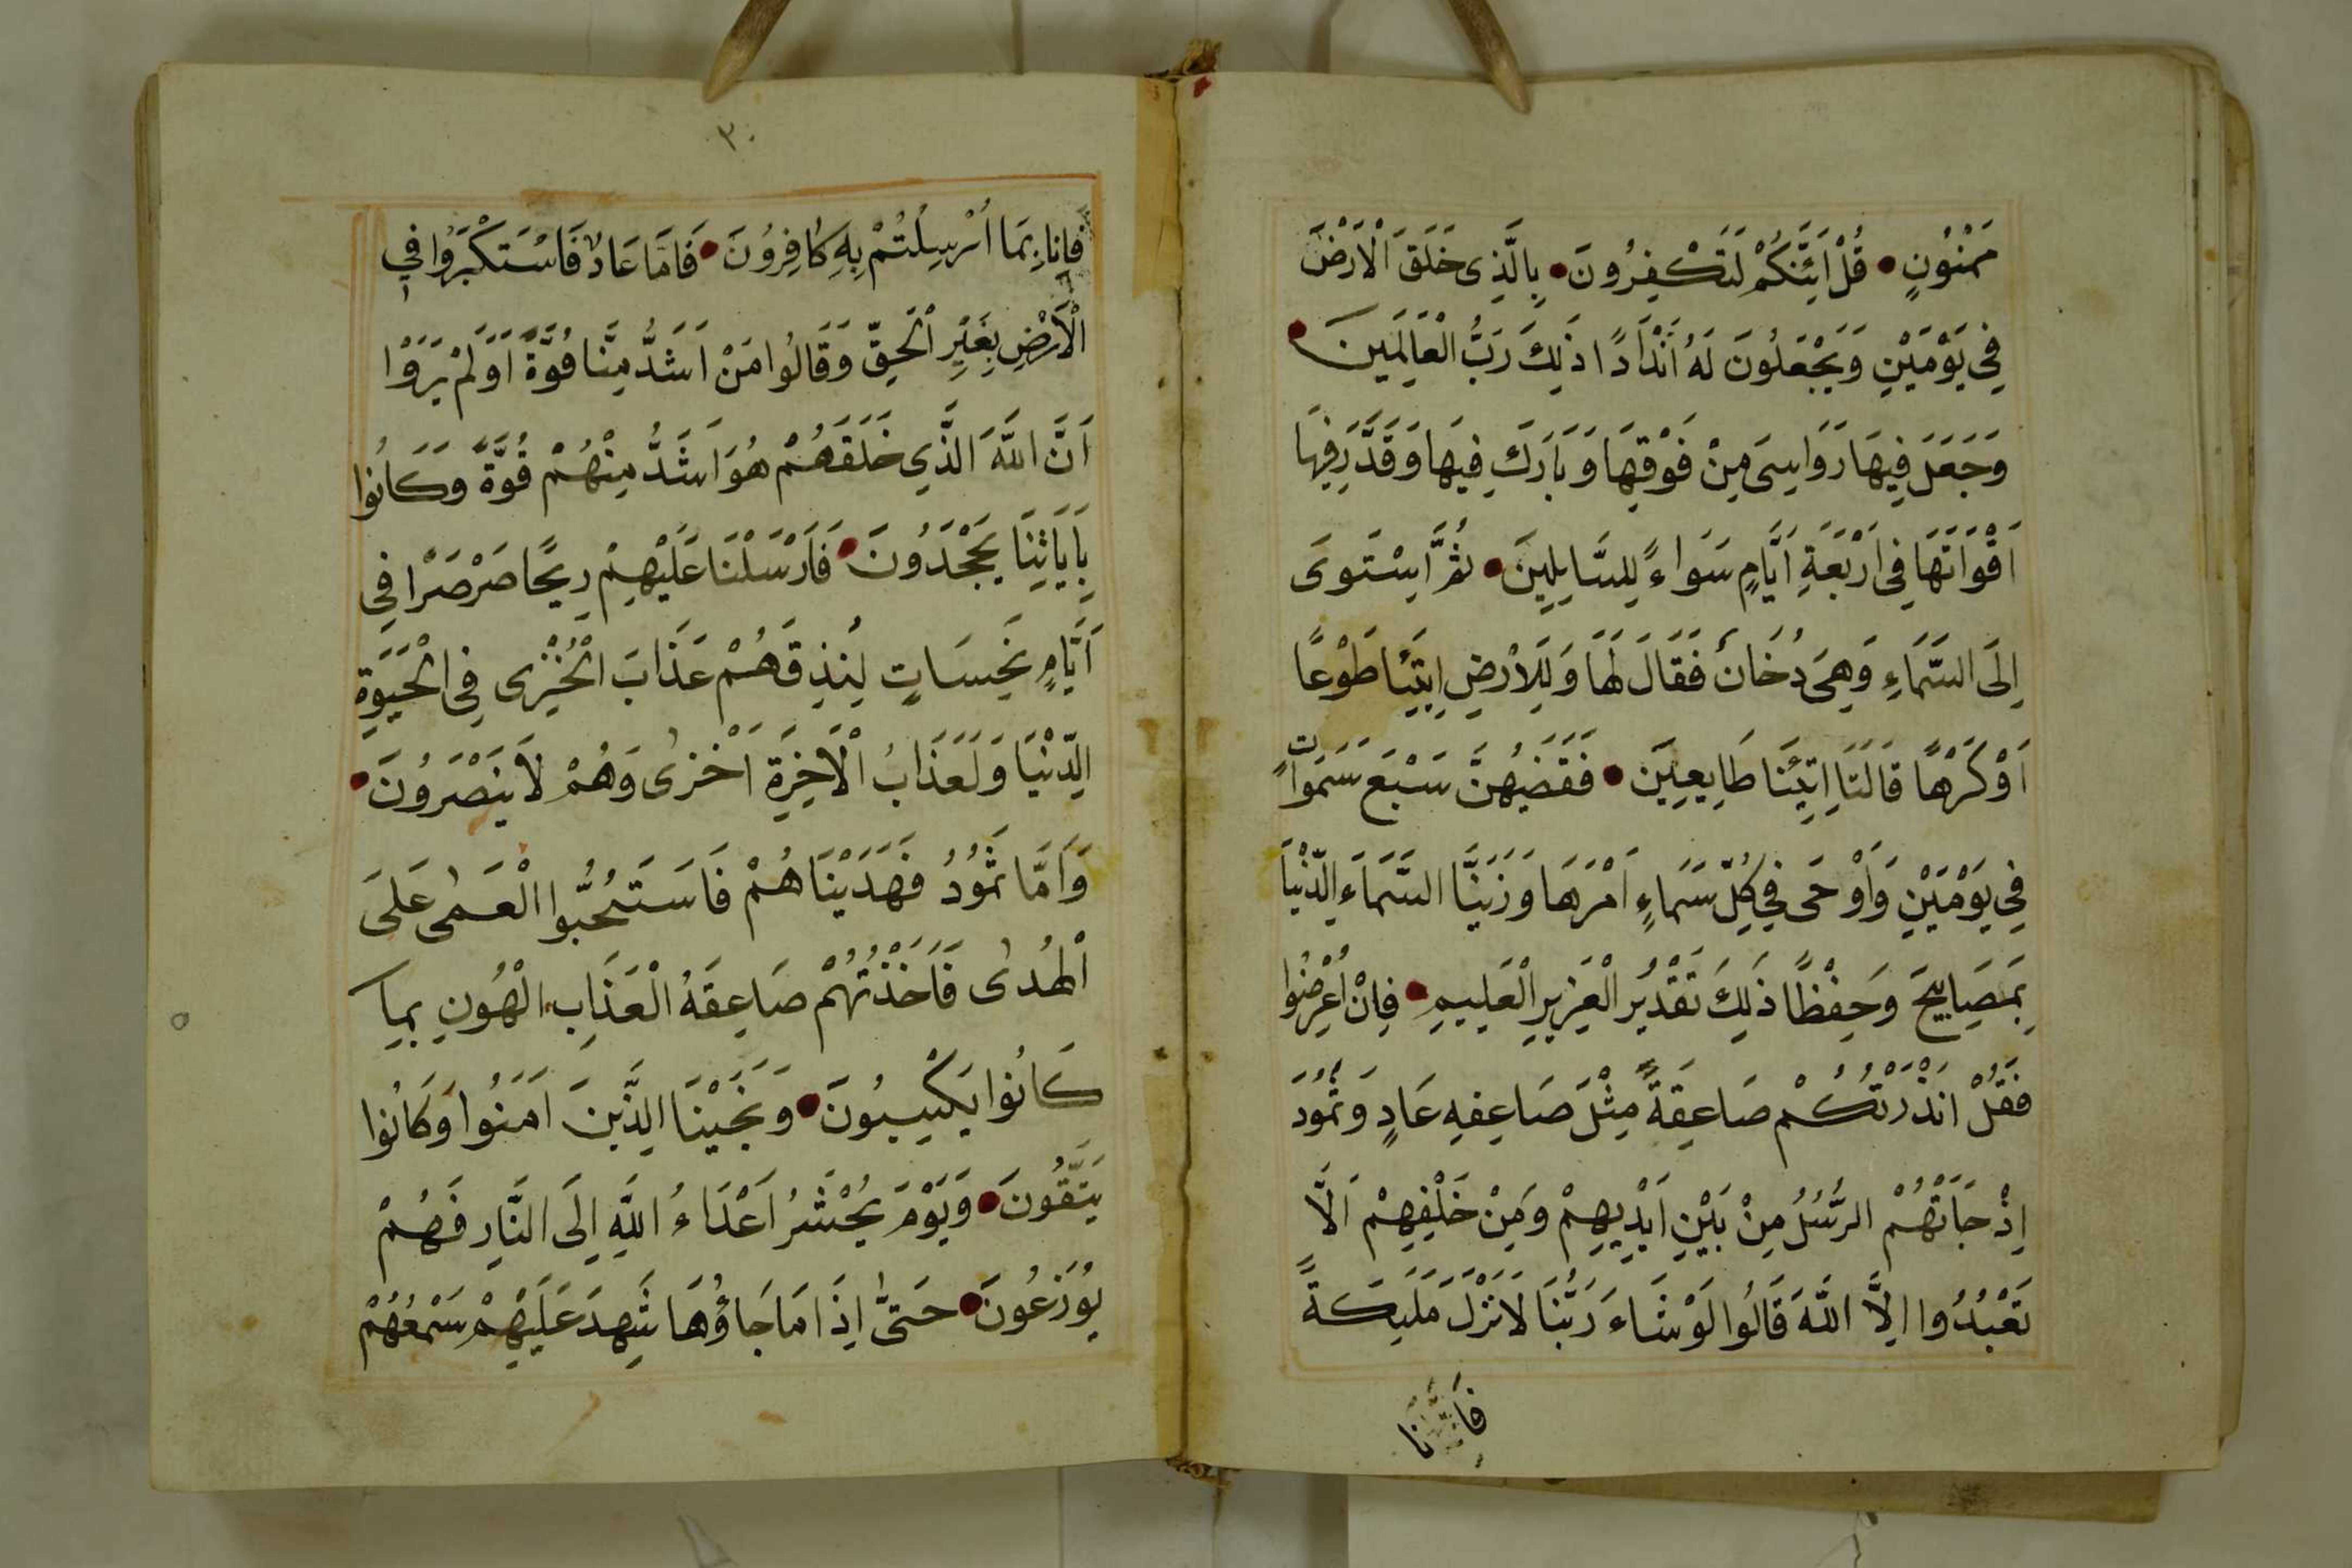 مَمْنُونٍ • قُلْ اَئِنَّكُمْ لَتَكْفِرُونَ • بِالَّذِى خَلَقَ الْاَرْضَ
فِى يَوْمَيْنِ وَيَجْعَلُونَ لَهُ اَنْدَادًا ذَلِكَ رَبُّ الْعَالَمِينَ •
وَجَعَلَ فِيهَا رَوَاسِىَ مِنْ فَوْقِهَا وَبَارَكَ فِيهَا وَقَدَّرَ فِيهَا
اَقْوَاتَهَا فِى اَرْبَعَةِ اَيَّامٍ سَوَاءً لِلسَّايِلِينَ • ثُمَّ اسْتَوَى
اِلَى السَّمَاءِ وَهِىَ دُخَانٌ فَقَالَ لَهَا وَلِلاَرْضِ اِيتِيَا طَوْعًا
اَوْ كَرْهًا قَالَتَا اَتَيْنَا طَايِعِينَ • فَقَضَيهُنَّ سَبْعَ سَمَوَاتٍ
فِى يَوْمَيْنِ وَاَوْحَى فِى كُلِّ سَمَاءٍ اَمْرَهَا وَزَيَّنَّا السَّمَاءَ الدُّنْيَا
بِمَصَابِيحَ وَحِفْظًا ذَلِكَ تَقْدِيرُ الْعَزِيزِ الْعَلِيمِ • فَاِنْ اَعْرَضُوا
فَقُلْ اَنْذَرْتُكُمْ صَاعِقَةً مِثْلَ صَاعِقَهِ عَادٍ وَثَمُودَ
اِذْ جَاَتْهُمُ الرُّسُلُ مِنْ بَيْنِ اَيْدِيهِمْ وَمِنْ خَلْفِهِمْ اَلَّا
تَعْبُدُوا اِلَّا اللَّهَ قَالُوا لَوْ شَاءَ رَبُّنَا لَاَنْزَلَ مَلَيِكَةً
٣٠
فَاِنَا بِمَا اُرْسِلْتُمْ بِهِ كَافِرُونَ • فَاَمَّا عَادٌ فَاسْتَكْبَرُوا فِى
الْاَرْضِ بِغَيْرِ الْحَقِّ وَقَالُوا مَنْ اَشَدُّ مِنَّا قُوَّةً اَوَلَمْ يَرَوْا
اَنَّ اللَّهَ الَّذِي خَلَقَهُمْ هُوَ اَشَدُّ مِنْهُمْ قُوَّةً وَكَانُوا
بِاَيَاتِنَا يَجْحَدُونَ • فَاَرْسَلْنَا عَلَيْهِمْ رِيحًا صَرْصَرًا فِى
اَيَّامٍ نَحِسَاتٍ لِنُذِيقَهُمْ عَذَابَ الْخِزْىِ فِى الْحَيَوةِ
الدُّنْيَا وَلَعَذَابُ الْاَخِرَةِ اَخْزٰى وَهُمْ لَا يُنْصَرُونَ •
وَاَمَّا ثَمُودُ فَهَدَيْنَاهُمْ فَاسْتَحَبُّوا الْعَمٰى عَلَى
الْهُدٰى فَاَخَذَتْهُمْ صَاعِقَةُ الْعَذَابِ الْهُونِ بِمَا
كَانُوا يَكْسِبُونَ • وَنَجَّيْنَا الَّذِينَ اَمَنُوا وَكَانُوا
يَتَّقُونَ • وَيَوْمَ يُحْشَرُ اَعْدَاءُ اللَّهِ اِلَى النَّارِ فَهُمْ
يُوزَعُونَ • حَتّٰى اِذَا مَا جَاؤُهَا شَهِدَ عَلَيْهِمْ سَمْعُهُمْ